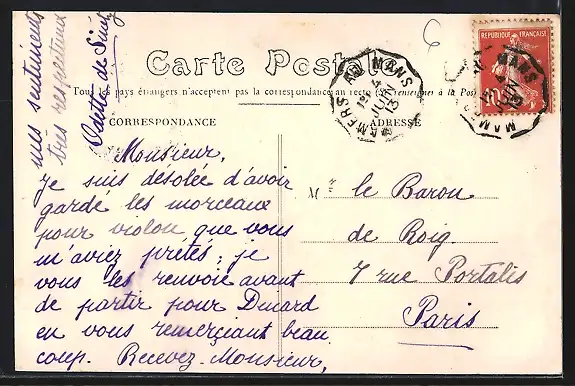 Carte Postale
Tous les pays étrangers n'acceptent pas la correspondance au recto (Se renseigner à la Poste)
CORRESPONDANCE
ADRESSE
Monsieur,
Je suis désolée d'avoir
gardé les morceaux
pour violon que vous
m'aviez prêtés; je
vous les renvoie avant
de partir pour Dinard
en vous remerciant beau
coup. Recevez Monsieur,
mes sentiments
très respectueux
Odette de
M le Baron
de Roig.
7 rue Portalis
Paris
REPUBLIQUE FRANÇAISE
10
MAMERS AU MANS
4
JUIL
13
MAMERS AU MANS
JUIL
13